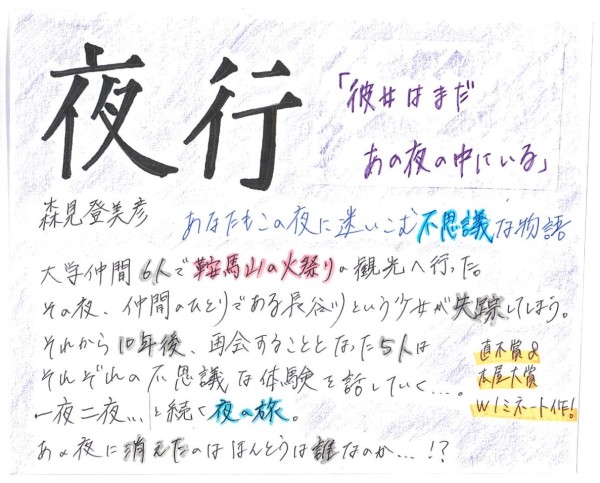 夜行
「彼女はまだ
あの夜の中にいる」
森見登美彦
あなたもこの夜に迷いこむ不思議な物語
大学仲間6人で鞍馬山の火祭りの観光へ行った。
その夜、仲間のひとりである長谷川という少女が失踪してしまう。
それから10年後、再会することとなった5人は
それぞれの不思議な体験を話していく…。
一夜二夜…と続く夜の旅。
あの夜に消えたのはほんとうは誰なのか…!?
直木賞&
本屋大賞
Wノミネート作!